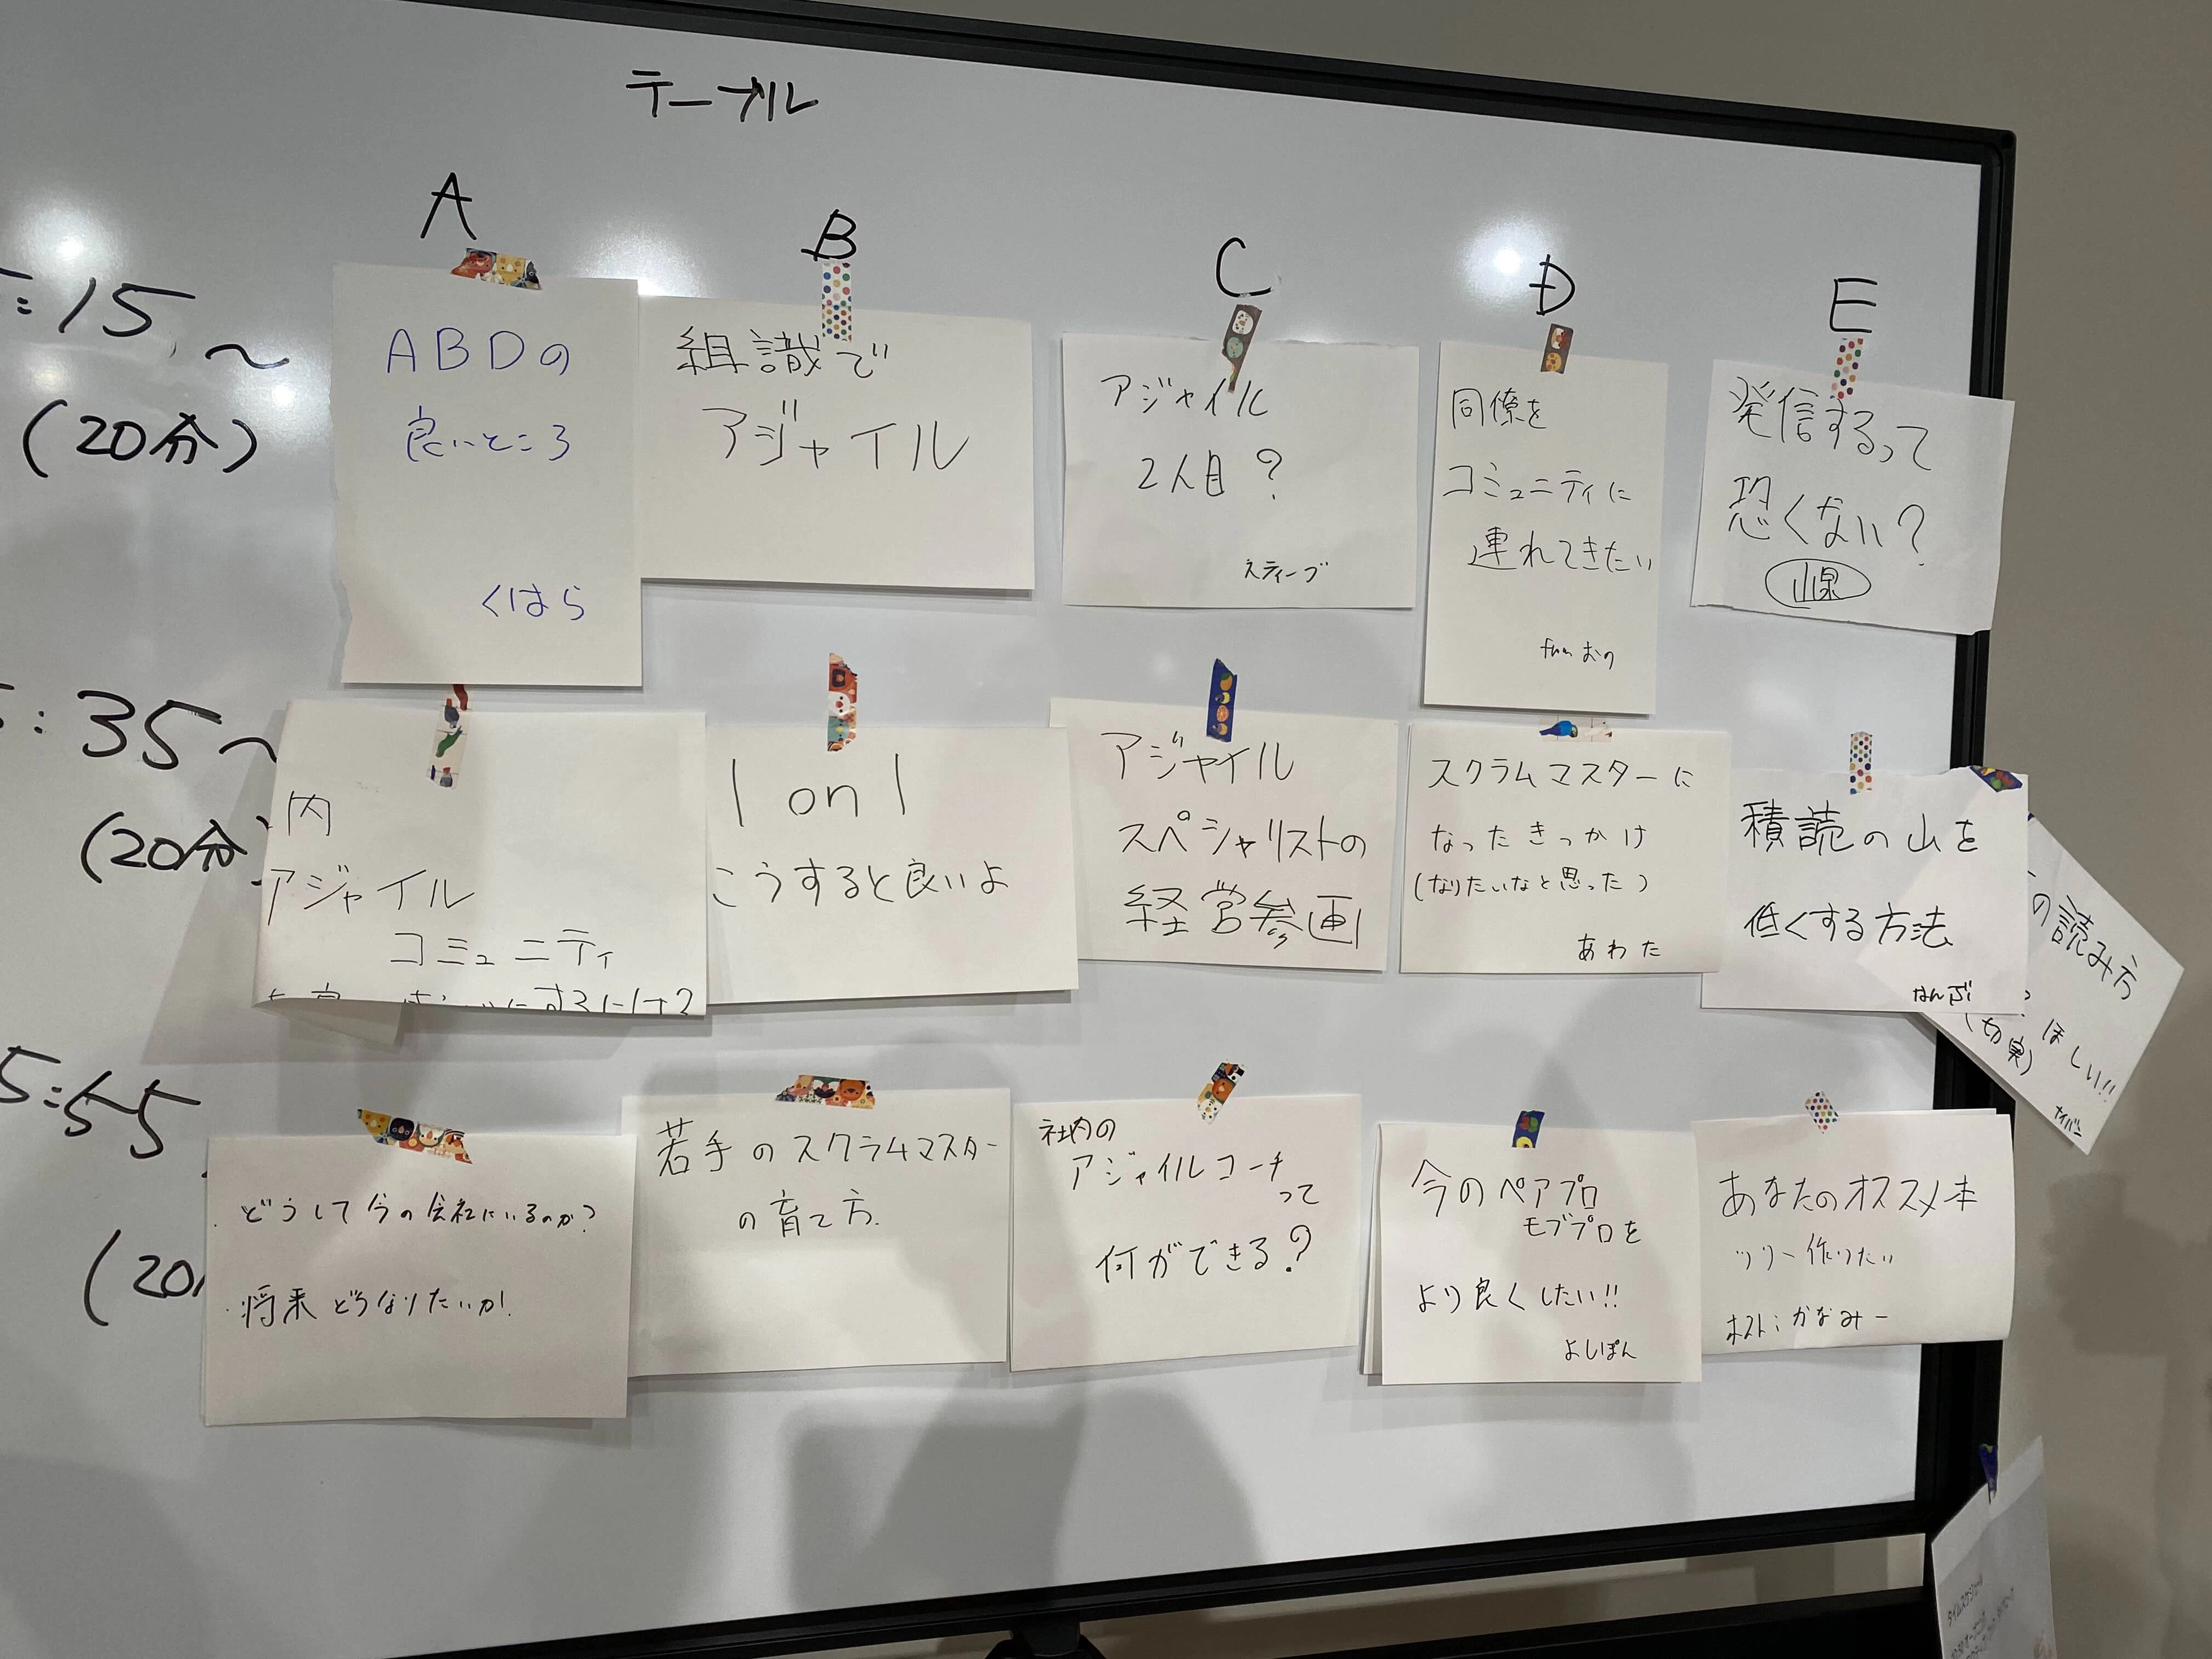 テーブル
A
B
C
D
E
:15~
(20分)
ABDの
良いところ
くはら
組識で
アジャイル
アジャイル
2人目?
スティーブ
同僚を
コミュニティに
連れてきたい
おの
発信するって
恐くない?
:35~
(20分
内
アジャイル
コミュニティ
1 on 1
こうすると良いよ
アジャイル
スペシャリストの
経営参画
スクラムマスターに
なったきっかけ
(なりたいなと思った)
あわた
積読の山を
低くする方法
なんぶ
の読み方
ほしい!!
(切実)
ナイバー
5:55
(20
どうして今の会社にいるのか?
将来どうなりたいか
若手のスクラムマスター
の育て方.
社内の
アジャイルコーチ
って
何ができる?
今のペアプロ
モブプロを
より良くしたい!!
よしぽん
あなたのオススメ本
ツリー作りたい
ホスト:かなみー